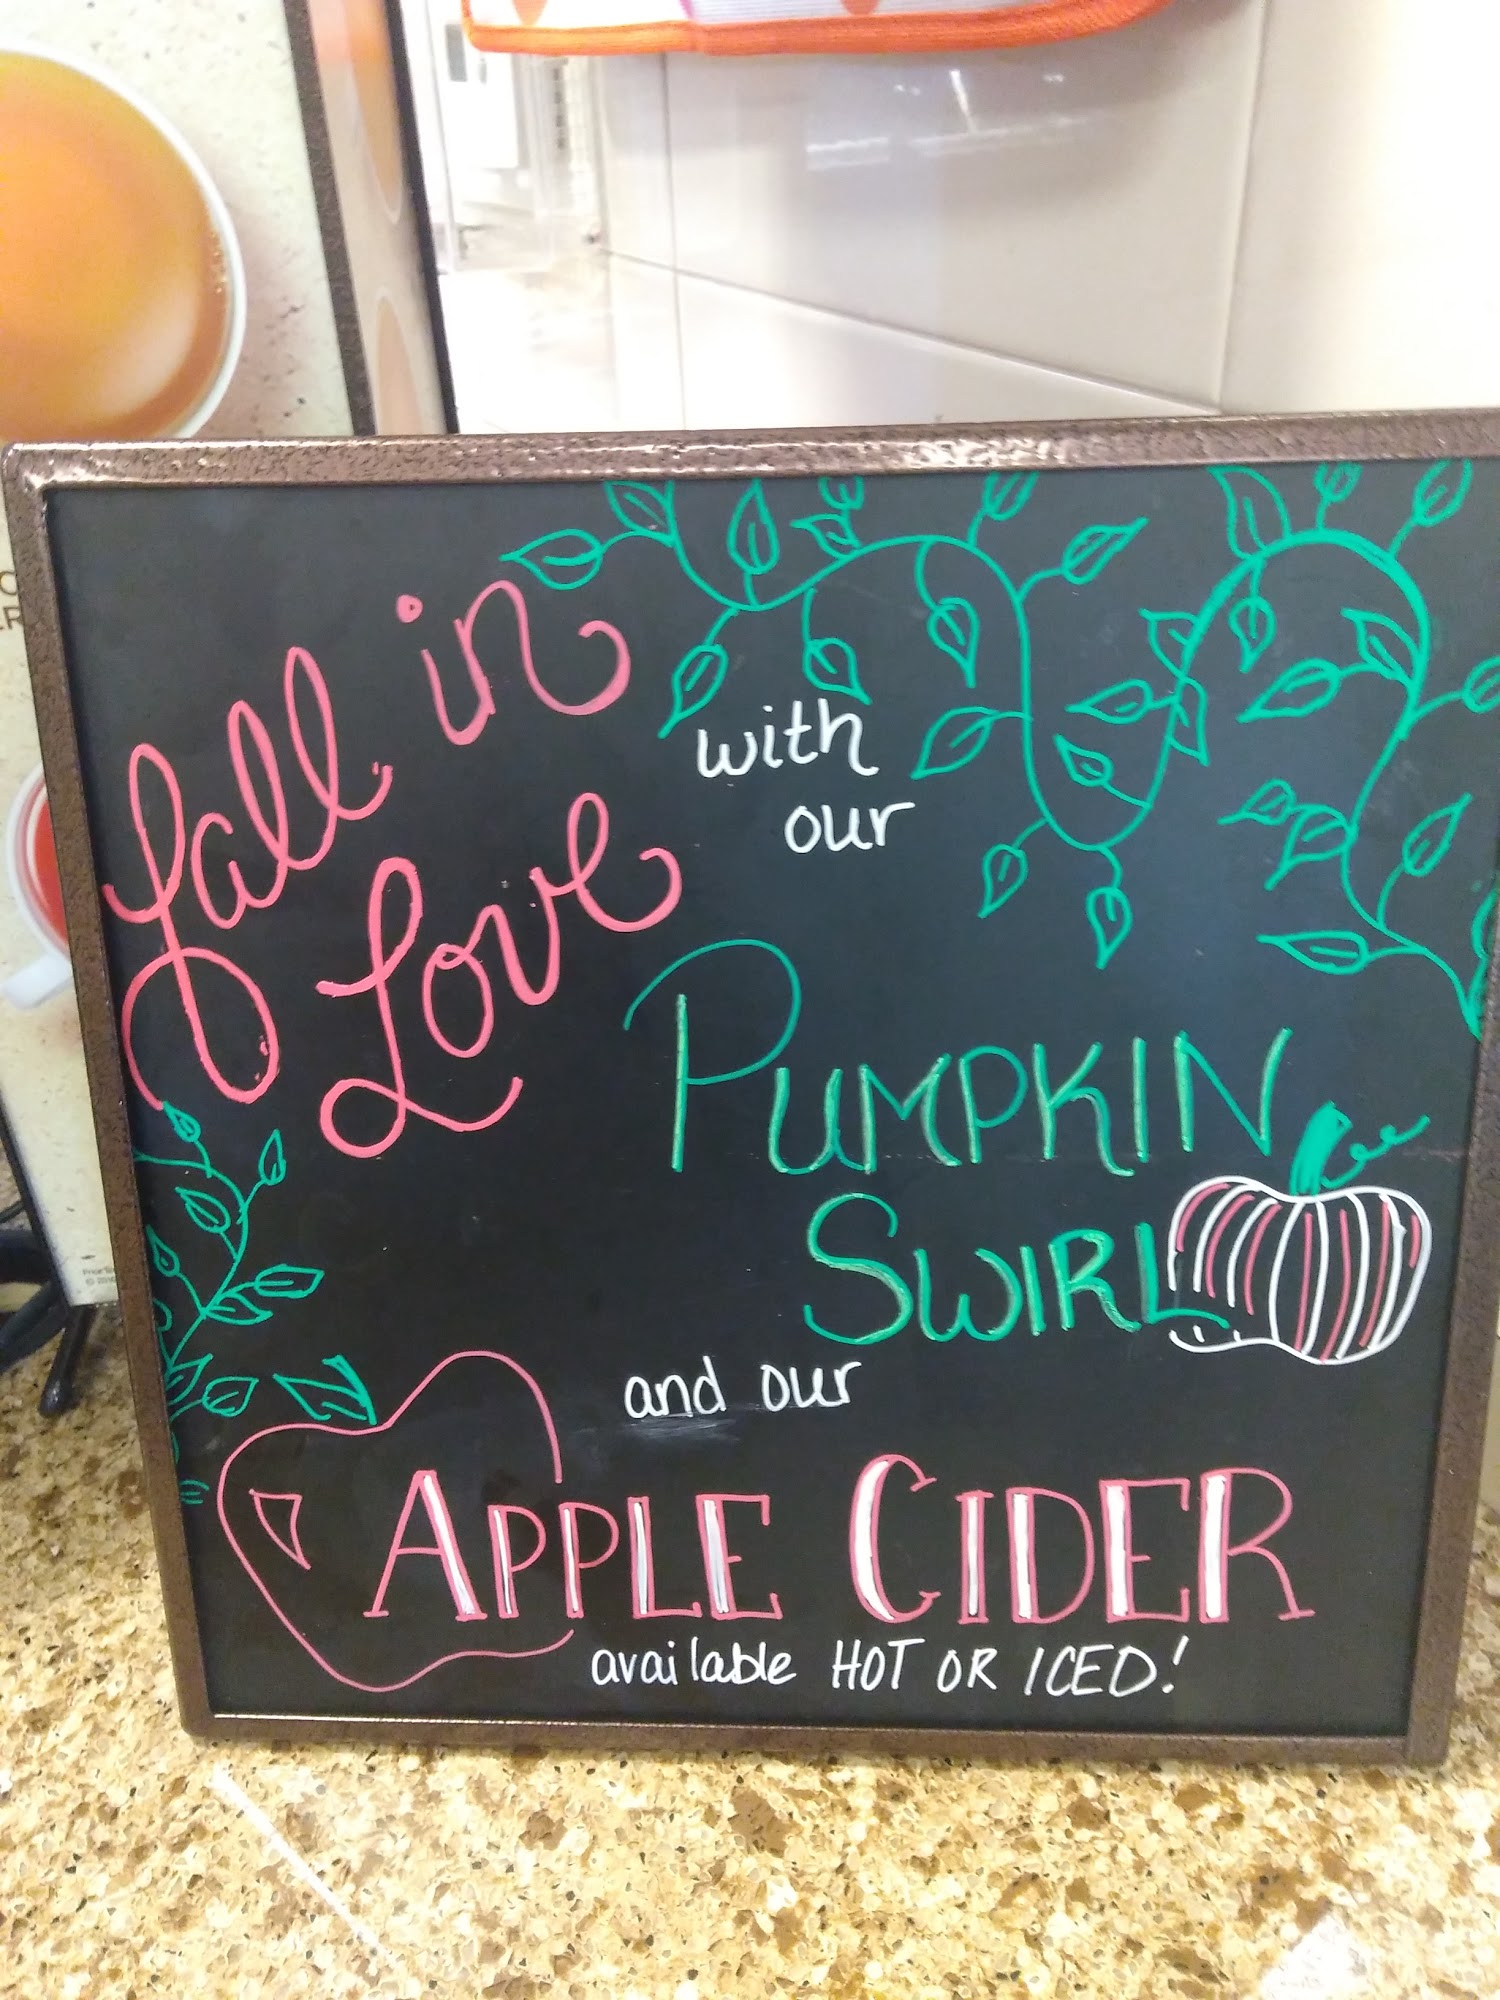 fall in
Love
with
our
PUMPKIN
SWIRL
and our
APPLE CIDER
available HOT OR ICED!